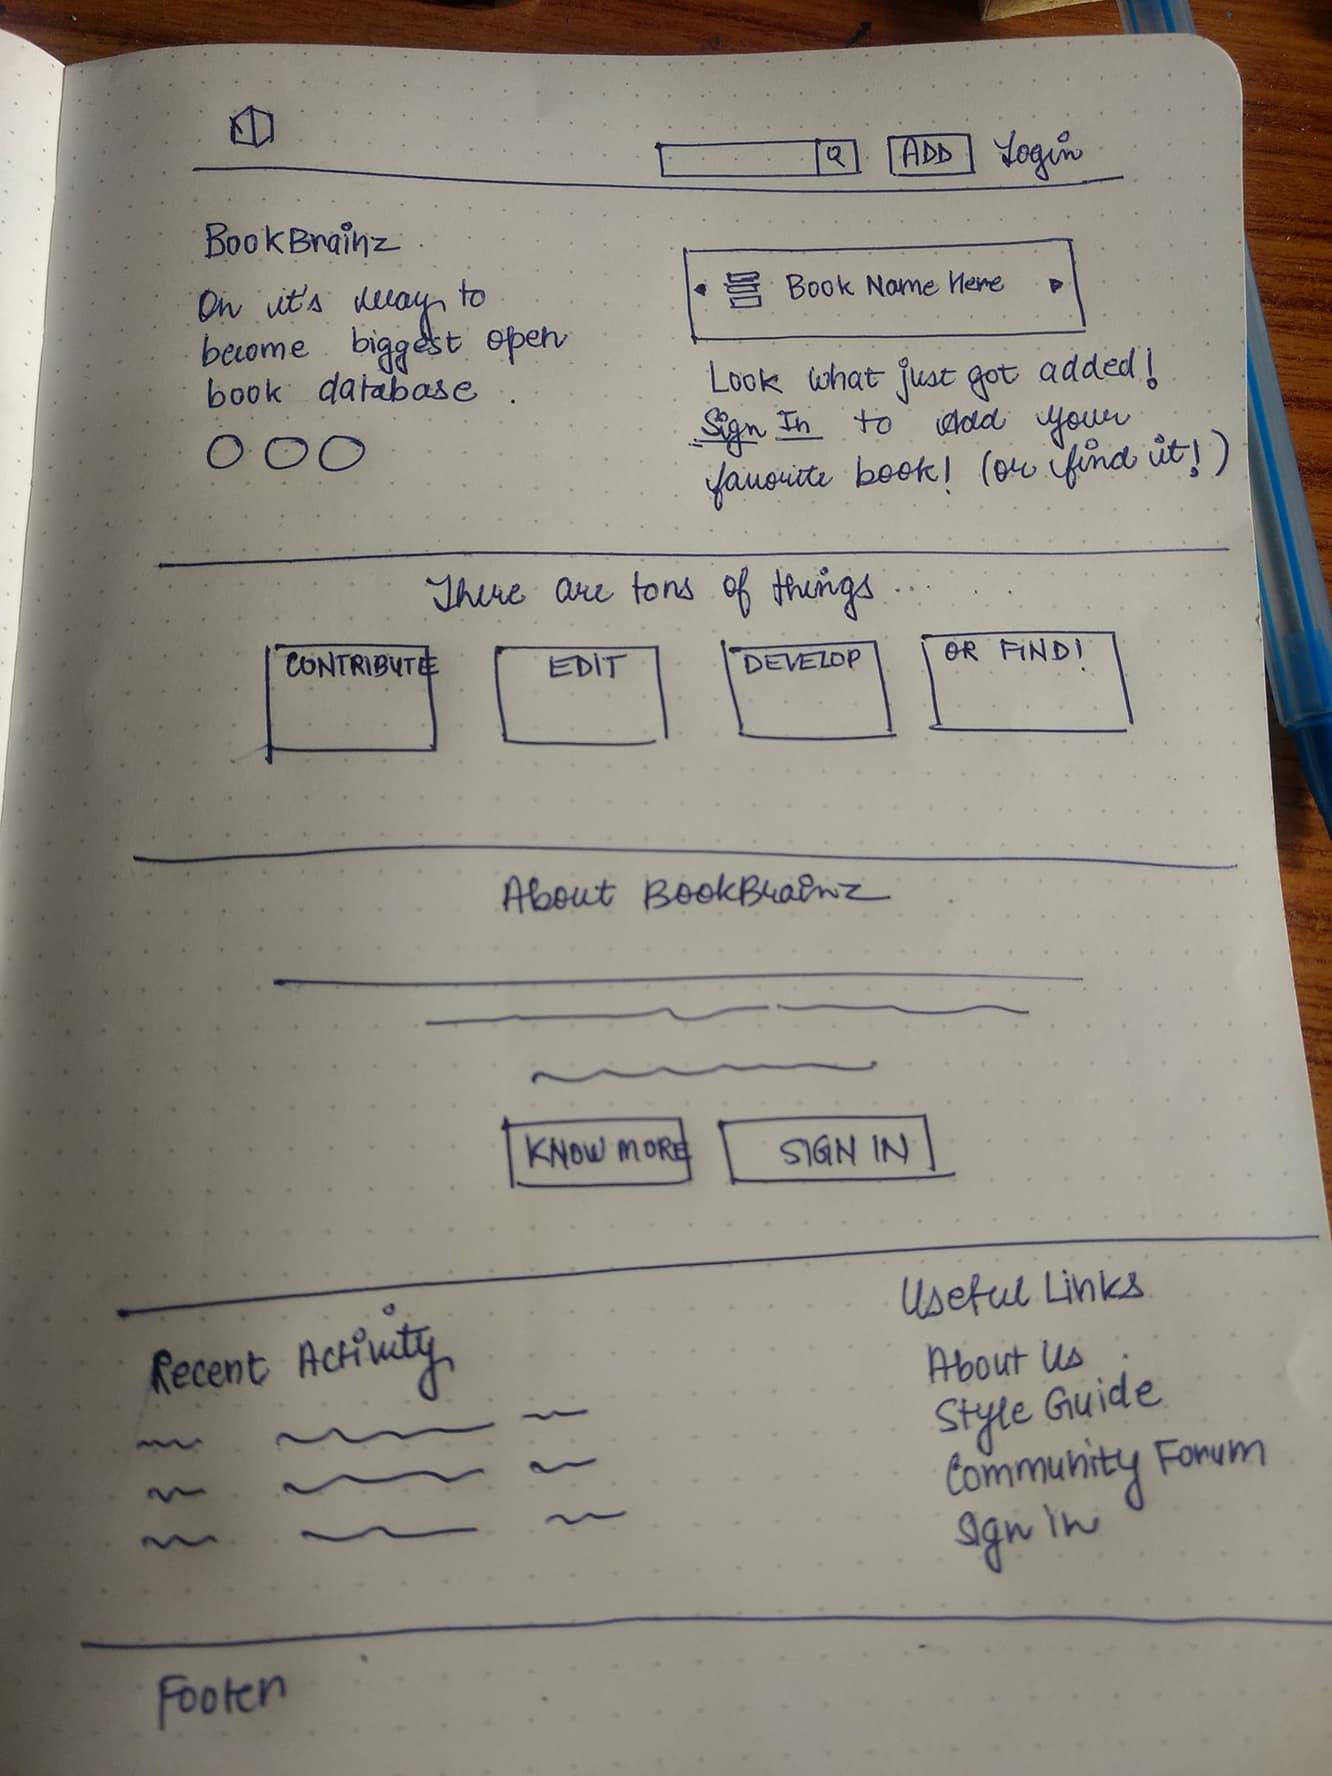 ADD Login
BookBrainz
On it's way to
become biggest open
book database.
Book Name Here
Look what just got added!
Sign In to add your
favorite book! (or find it!)
There are tons of things.....
CONTRIBUTE EDIT DEVELOP OR FIND!
About BookBrainz
KNOW MORE SIGN IN
Recent Activity
Useful Links
About Us.
Style Guide
Community Forum
Sign in
Footer